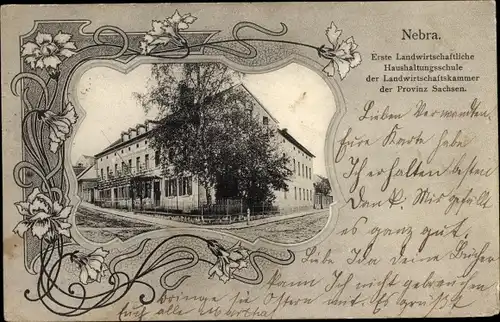 Nebra.
Erste Landwirtschaftliche
Haushaltungsschule
der Landwirtschaftskammer
der Provinz Sachsen.
Lieben Verwandten
Eure Karte habe
Ich erhalten besten
Dank. Mir gefällt
es ganz gut.
Liebe Ida deine Bücher
kann Ich nicht gebrauchen
bringe sie Ostern mit. Es grüßt
Euch alle